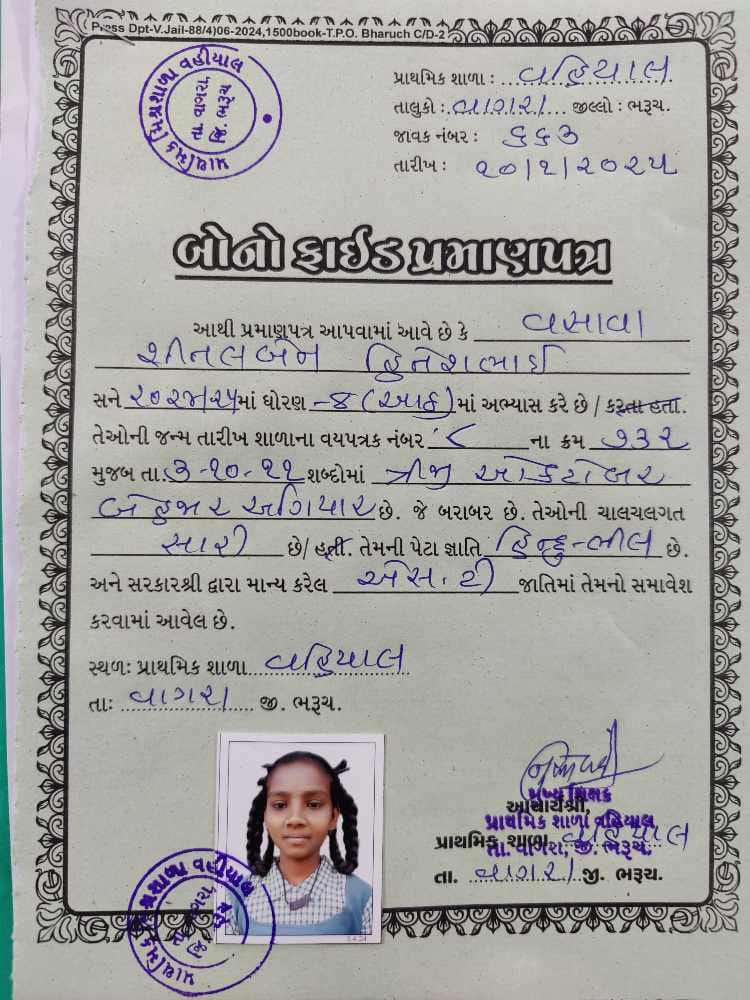 Press Dpt-V.Jail-88/4)06-2024,1500book-T.P.O. Bharuch C/D-2
પ્રાથમિક મિશ્રશાળા વહીયાલ
તા. વાગરા,
જી. ભરૂચ
પ્રાથમિક શાળા : વહિયાલ
તાલુકો : વાગરા જીલ્લો : ભરૂચ.
જાવક નંબર : ૬૬૩
તારીખ : ૨૦/૧/૨૦૨૫
બોનો ફાઈડ પ્રમાણપત્ર
આથી પ્રમાણપત્ર આપવામાં આવે છે કે વસાવા
શીતલબેન હિનેશભાઈ
સને ૨૦૨૪/૨૫માં ધોરણ - ૪ (આઠ) માં અભ્યાસ કરે છે / કરતા હતા.
તેઓની જન્મ તારીખ શાળાના વયપત્રક નંબર ૮ ના ક્રમ ૧૩૨
મુજબ તા. ૩-૧૦-૧૧ શબ્દોમાં ત્રીજી ઓક્ટોબર
બે હજાર અગિયાર છે. જે બરાબર છે. તેઓની ચાલચલગત
સારી છે/ હતી. તેમની પેટા જ્ઞાતિ હિન્દુ-ભીલ છે.
અને સરકારશ્રી દ્વારા માન્ય કરેલ એસ.ટી જાતિમાં તેમનો સમાવેશ
કરવામાં આવેલ છે.
સ્થળ: પ્રાથમિક શાળા વહિયાલ
તા: વાગરા જી. ભરૂચ.
મુખ્ય શિક્ષક
આચાર્યશ્રી,
પ્રાથમિક શાળા વહિયાલ
પ્રાથમિક શાળા વહિયાલ
તા. વાગરા, જી. ભરૂચ.
તા. વાગરા જી. ભરૂચ.
પ્રાથમિક મિશ્રશાળા વહીયાલ
તા. વાગરા,
જી. ભરૂચ